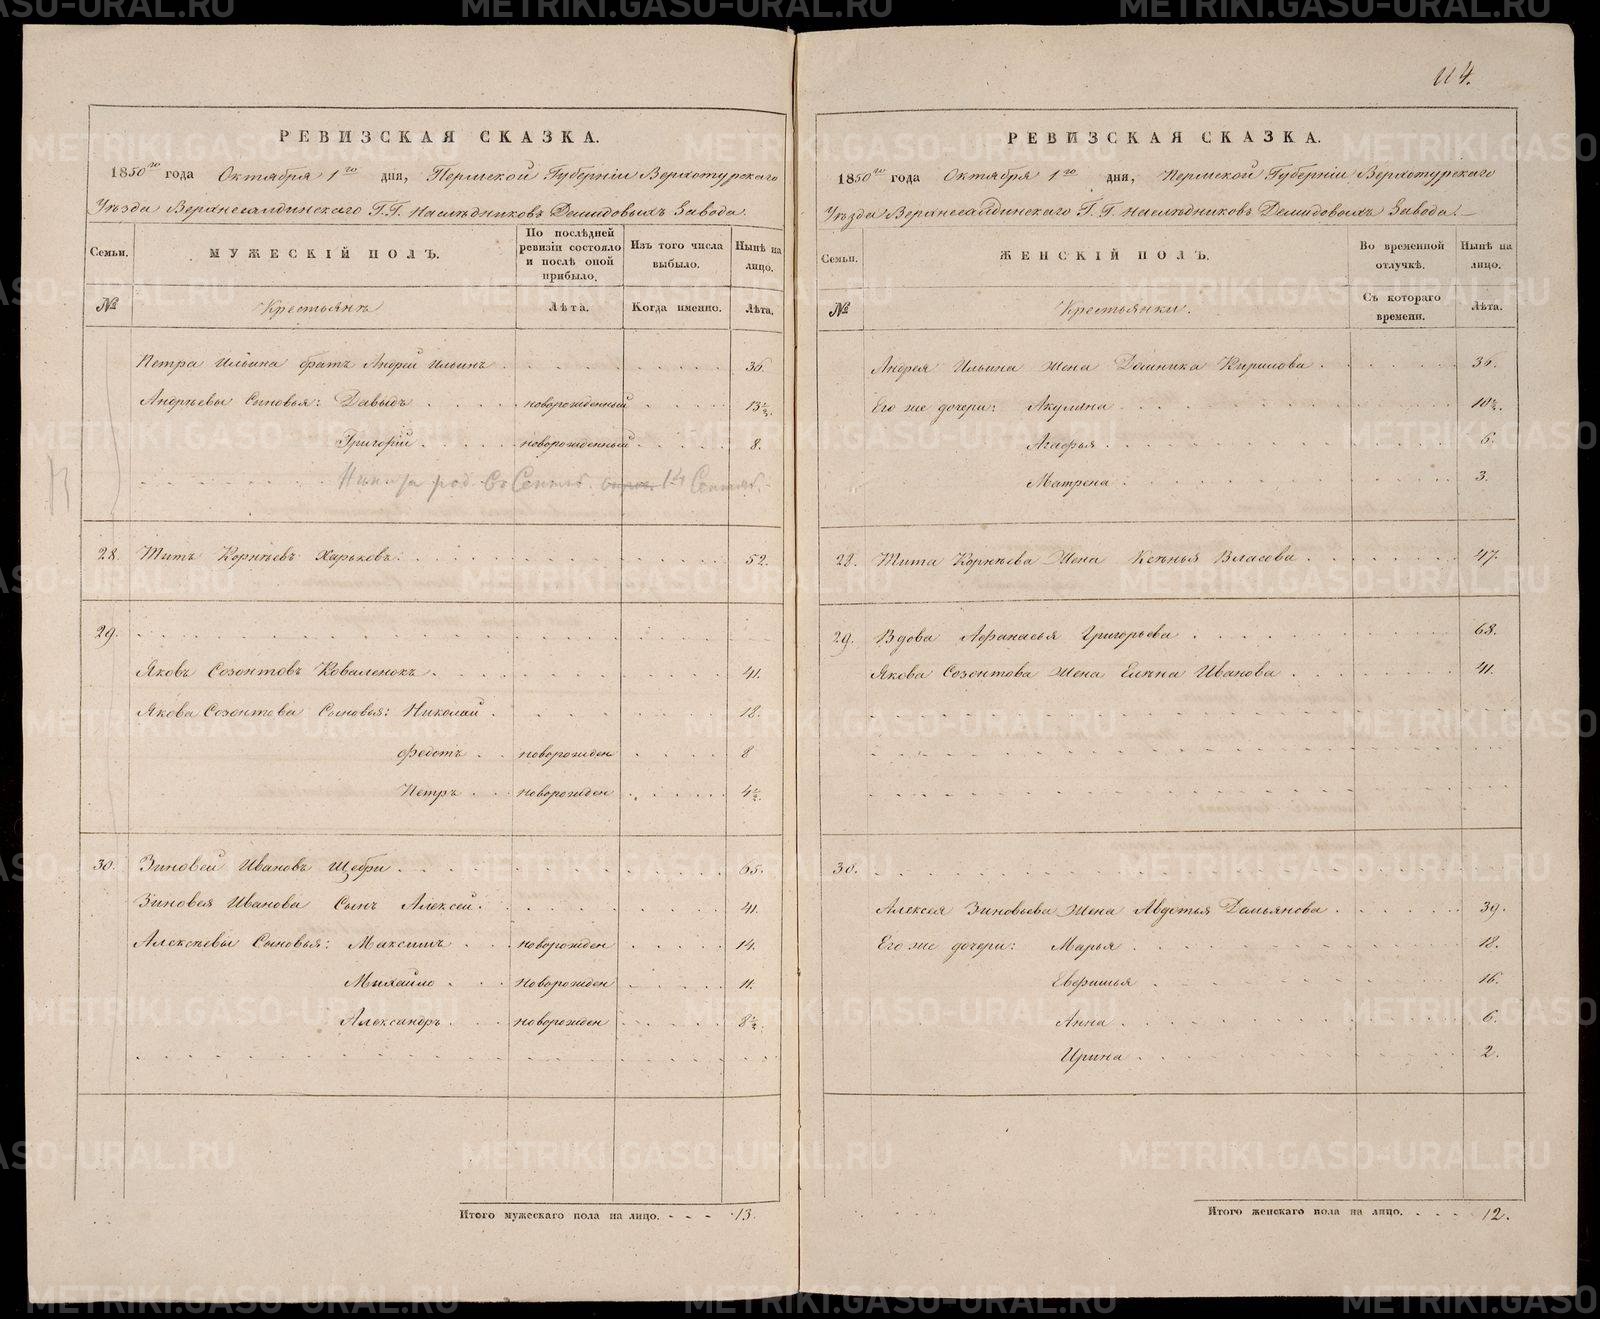 114.
РЕВИЗСКАЯ СКАЗКА.
1850го года Октября 1го дня, Пермской Губерніи Верхотурскаго
Уѣзда Верхнесалдинскаго Г.Г. Наслѣдниковъ Демидовыхъ Завода.
Семьи. МУЖЕСКІЙ ПОЛЪ. По послѣдней ревизіи состояло и послѣ оной прибыло. Изъ того числа выбыло. Нынѣ на лицо.
№ Крестьянъ Лѣта. Когда именно. Лѣта.
Петра Ильина братъ Андрей Ильинъ 36.
Андреевы Сыновья: Давыдъ новорожденный 13½.
Григорій новорожденный 8.
род. Сентяб.
28. Титъ Корнѣевъ Харьковъ 52.
29.
Яковъ Созонтовъ Коваленокъ 41.
Якова Созонтова Сыновья: Николай 18.
Федотъ новорожден 8
Петръ новорожден 4½.
30. Зиновей Ивановъ Щебри 65.
Зиновея Иванова Сынъ Алексей 41.
Алексѣевы Сыновья: Максимъ новорожден 14.
Михайло новорожден 11.
Александръ новорожден 8½.
Итого мужескаго пола на лицо. 13.
РЕВИЗСКАЯ СКАЗКА.
1850го года Октября 1го дня, Пермской Губерніи Верхотурскаго
Уѣзда Верхнесалдинскаго Г.Г. Наслѣдниковъ Демидовыхъ Завода.
Семьи. ЖЕНСКІЙ ПОЛЪ. Во временной отлучкѣ. Нынѣ на лицо.
№ Крестьянки. Съ котораго времени. Лѣта.
Андрея Ильина жена Домника Кирилова 36.
Его же дочери: Акулина 10½.
Агафья 6.
Матрена 3.
28. Тита Корнѣева жена Ксѣнья Власова 47.
29. Вдова Афанасья Григорьева 68.
Якова Созонтова жена Елѣна Иванова 41.
30.
Алексея Зиновьева жена Авдотья Дамьянова 39.
Его же дочери: Марья 18.
Евфимья 16.
Анна 6.
Ирина 2.
Итого женскаго пола на лицо. 12.
METRIKI.GASO-URAL.RU